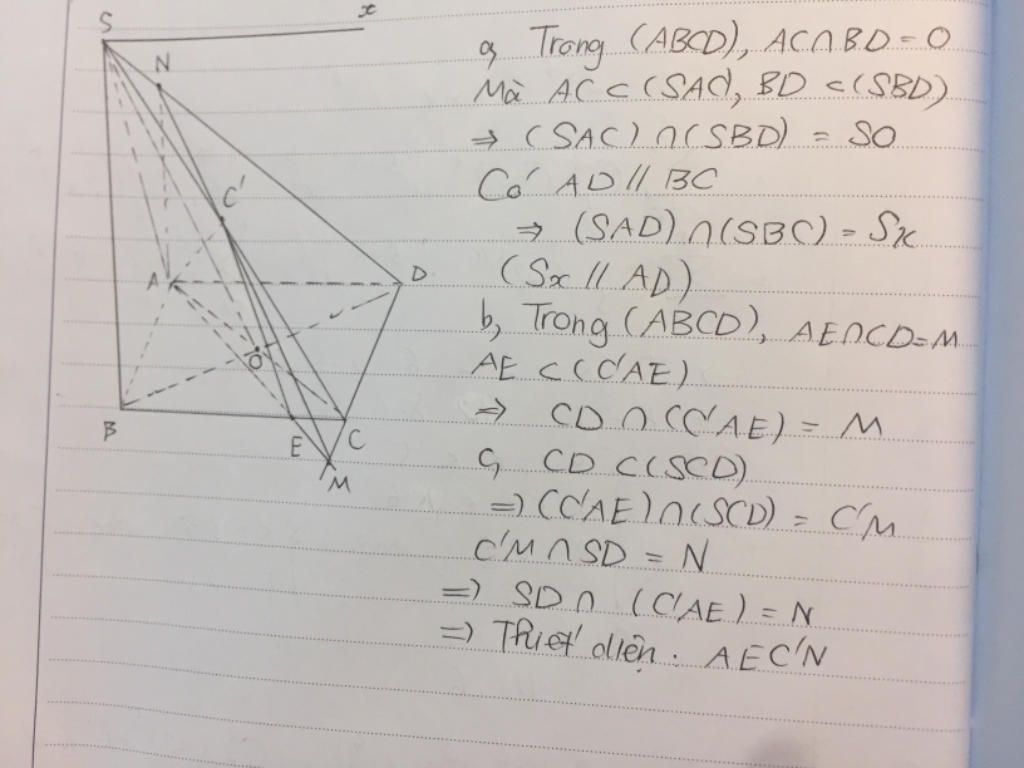 S
x
N
C'
A
D
O
B
E
C
M
a, Trong (ABCD), AC∩BD = O
Mà AC ⊂ (SAC), BD ⊂ (SBD)
⇒ (SAC) ∩ (SBD) = SO
Có AD // BC
⇒ (SAD) ∩ (SBC) = Sx
(Sx // AD)
b, Trong (ABCD), AE∩CD=M
AE ⊂ (C'AE)
⇒ CD ∩ (C'AE) = M
c, CD ⊂ (SCD)
⇒ (C'AE) ∩ (SCD) = C'M
C'M ∩ SD = N
⇒ SD ∩ (C'AE) = N
⇒ Thiết diện. AEC'N